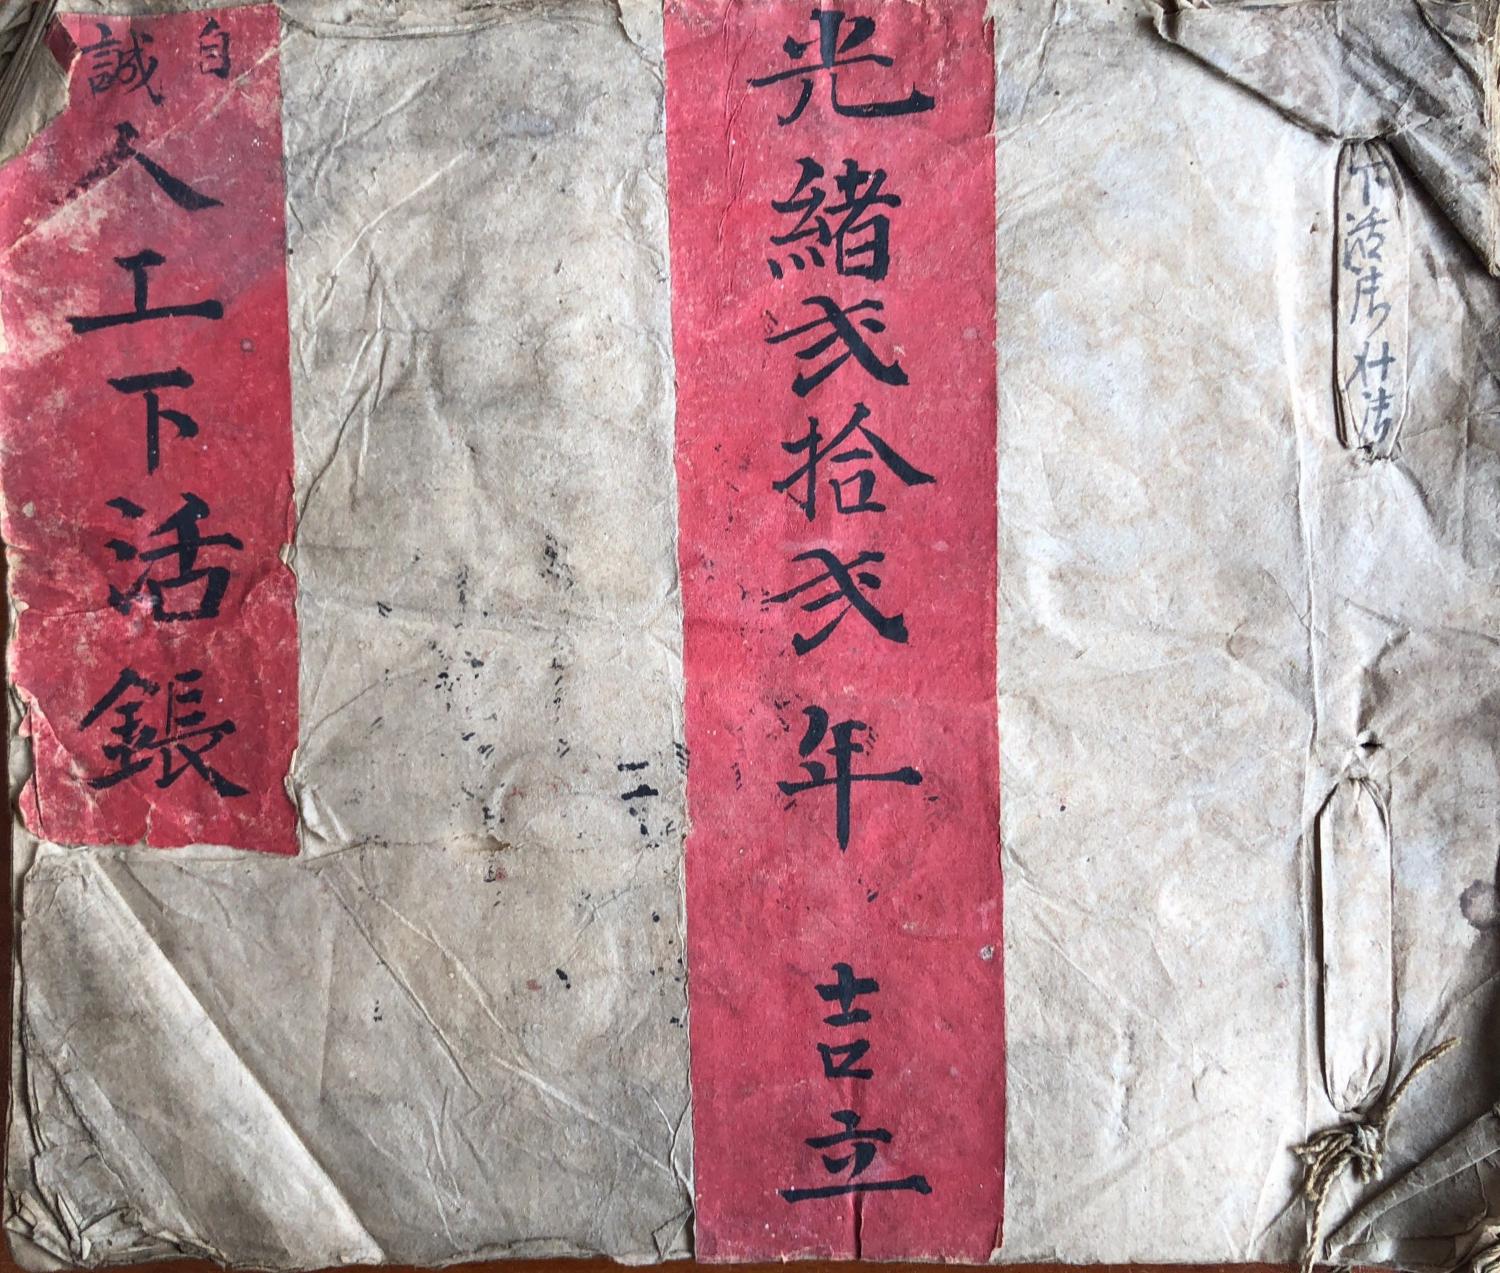 下活
光緒弍拾弍年 吉立
自誠
人工下活鋹